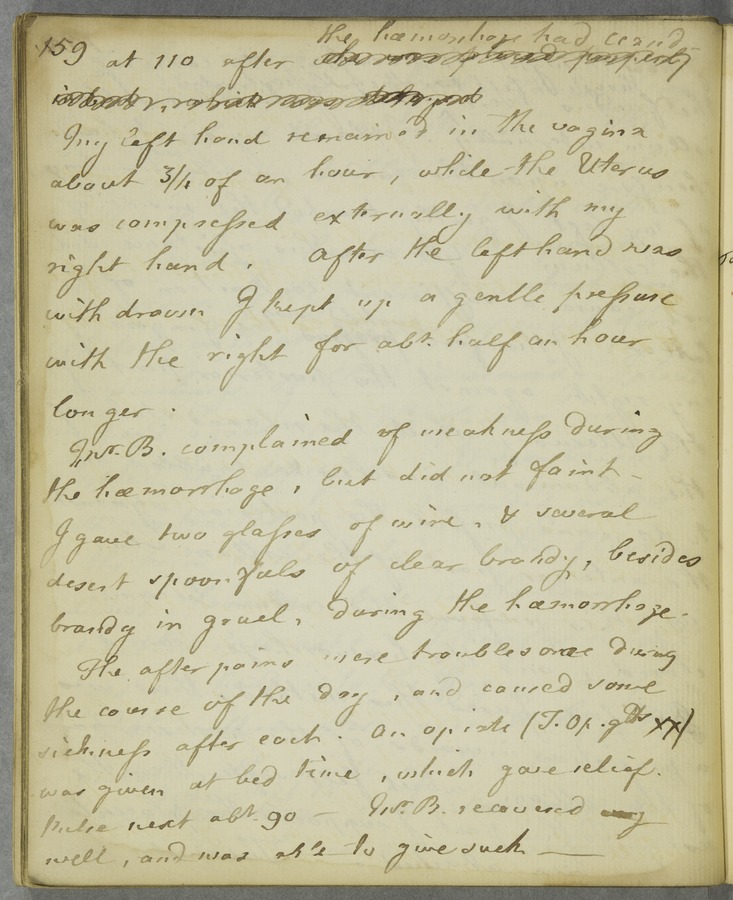 the hæmorrhage had ceas'd
159 at 110 after
My left hand remained in the vagina
about 3/4 of an hour, while the Uterus
was compressed externally with my
right hand. After the left hand was
withdrawn I kept up a gentle pressure
with the right for abt. half an hour
longer.
Mrs. B. complained of weakness during
the hæmorrhage, but did not faint –
I gave two glasses of wine, & several
desert spoonfuls of clear brandy, besides
brandy in gruel, during the hæmorrhage.
The after pains were troublesome during
the course of the day, and caused some
sickness after each. An opiate (T. Op. gtts xx)
was given at bed time, which gave relief.
Pulse next abt. 90 — Mrs. B. recovered
well, and was able to give suck —